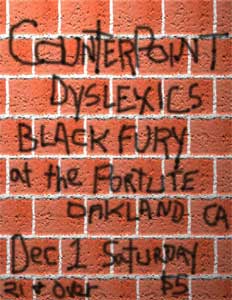 COUNTERPOINT
DYSLEXICS
BLACK FURY
at the PORTLITE
OAKLAND CA
Dec 1 SATURDAY
21 + over $5